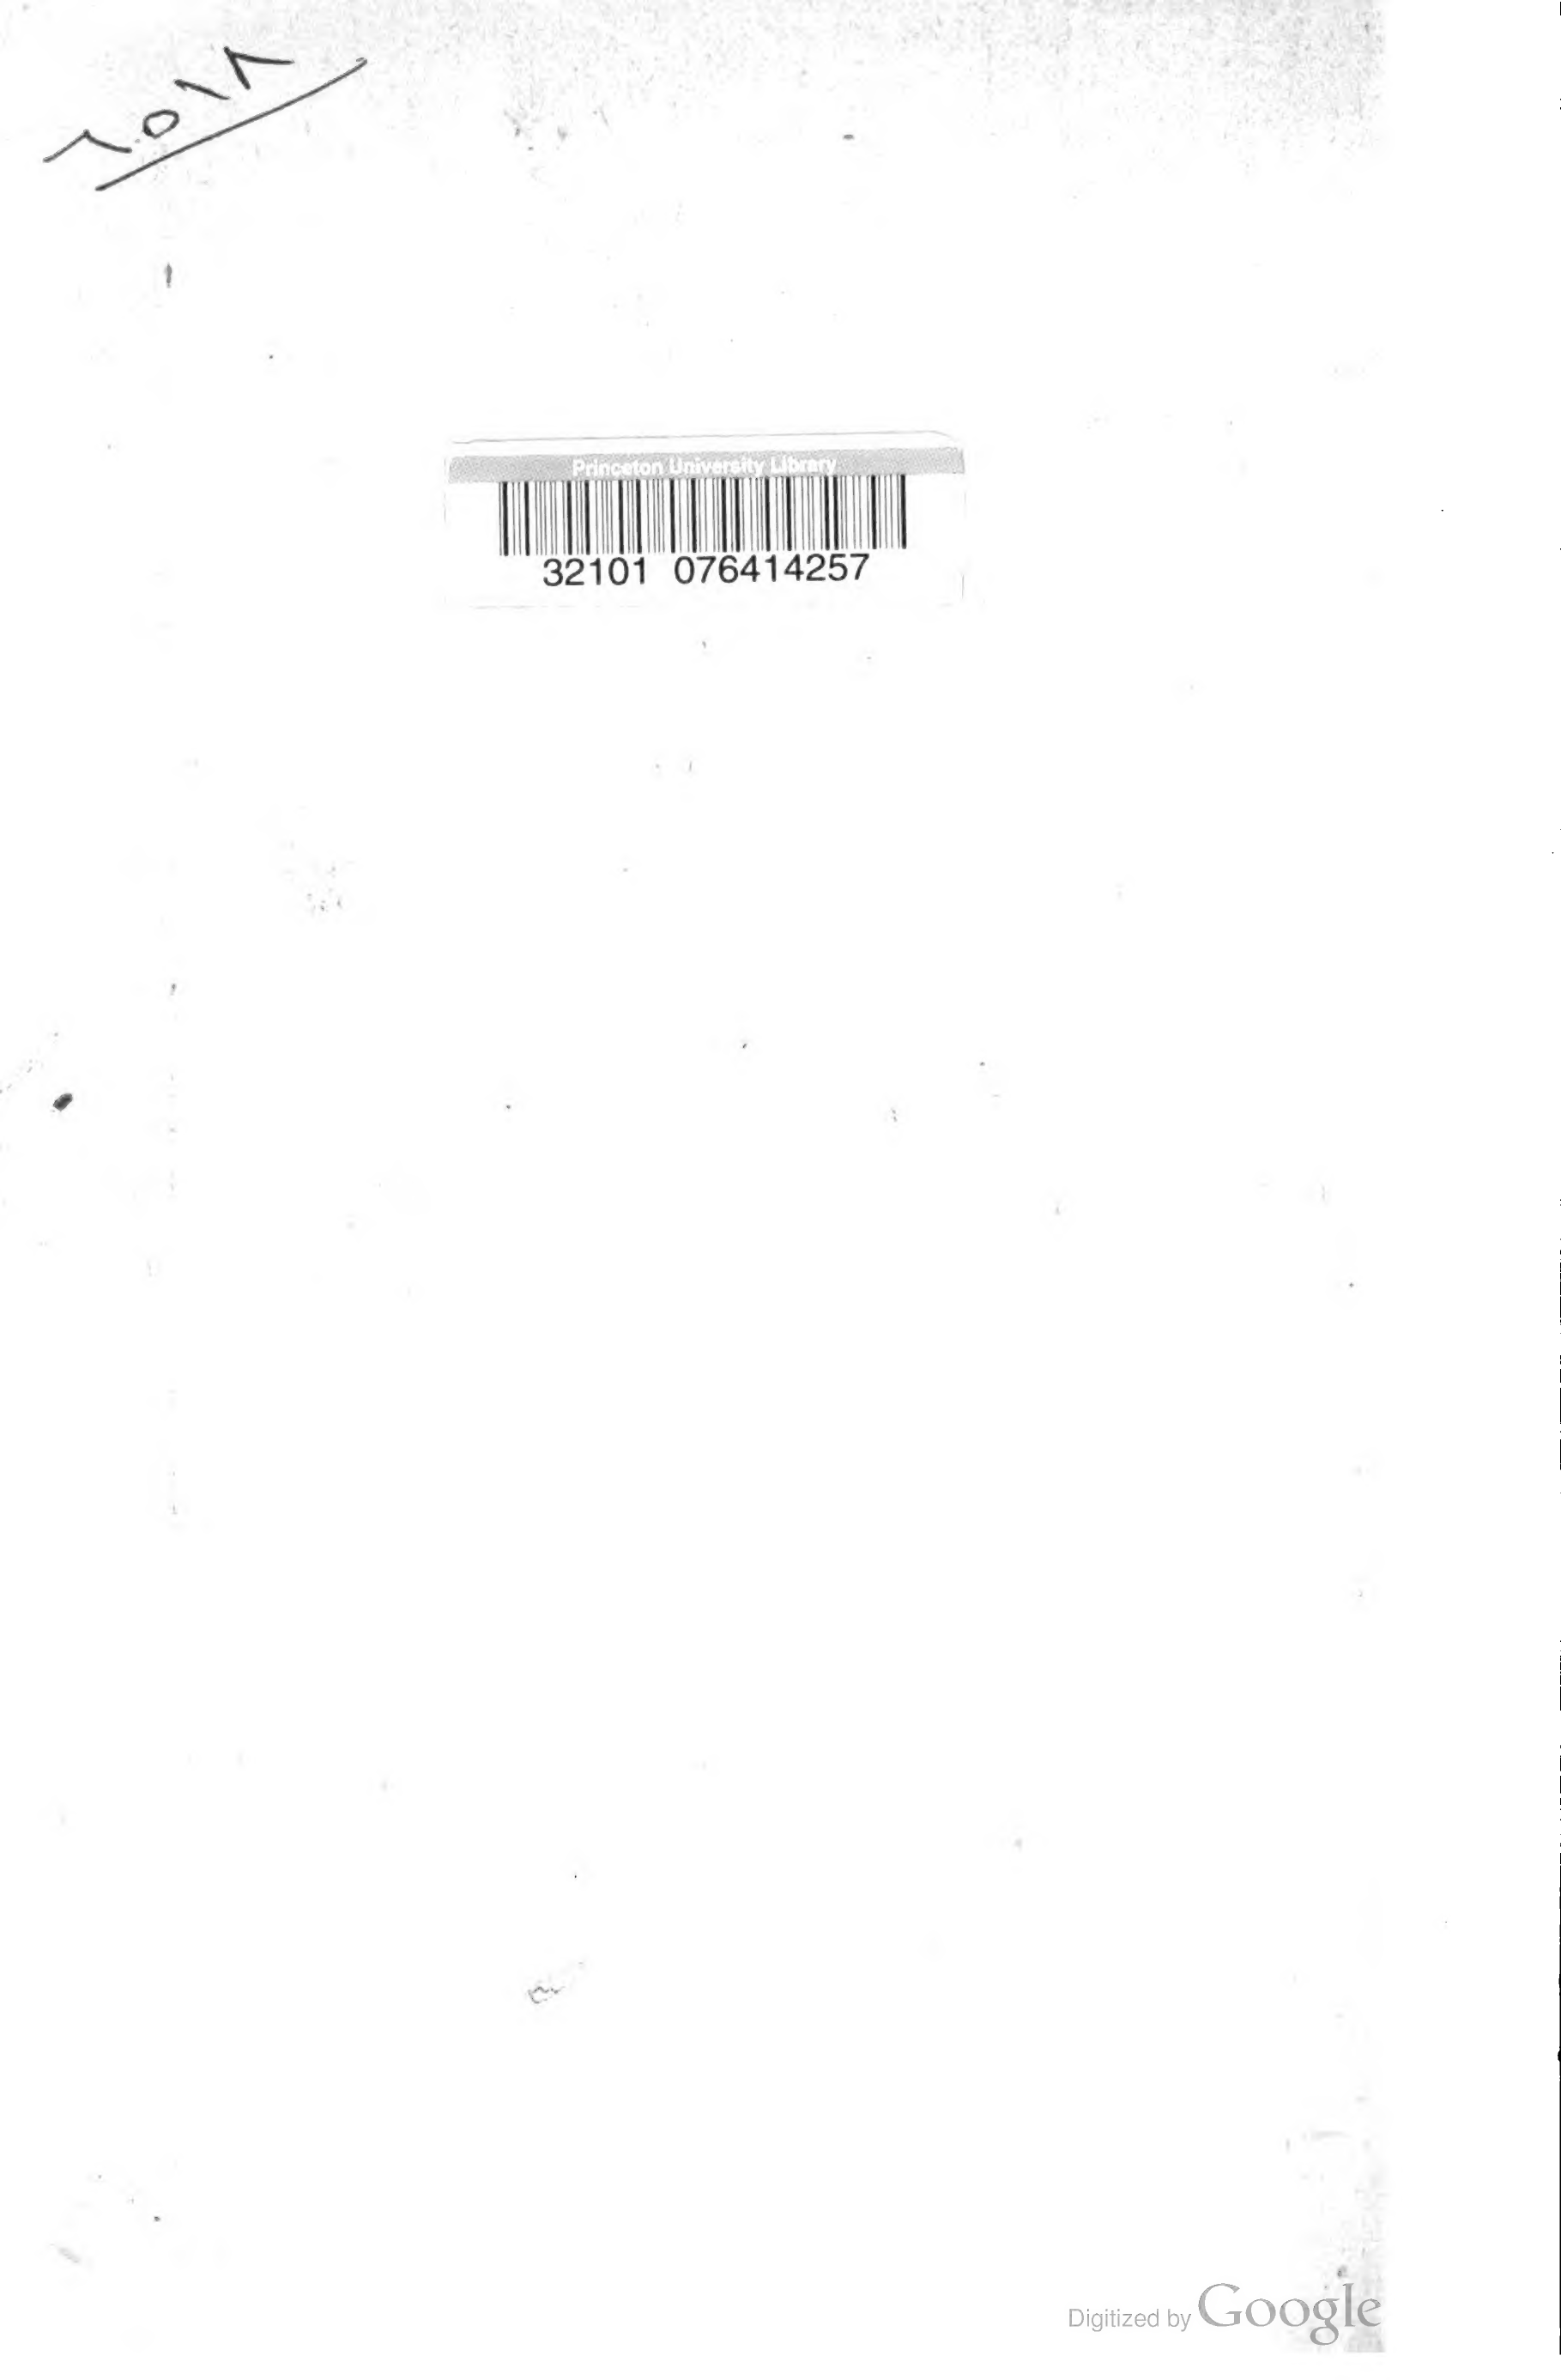 ٦٥١٨
Princeton University Library
32101 076414257
Digitized by Google